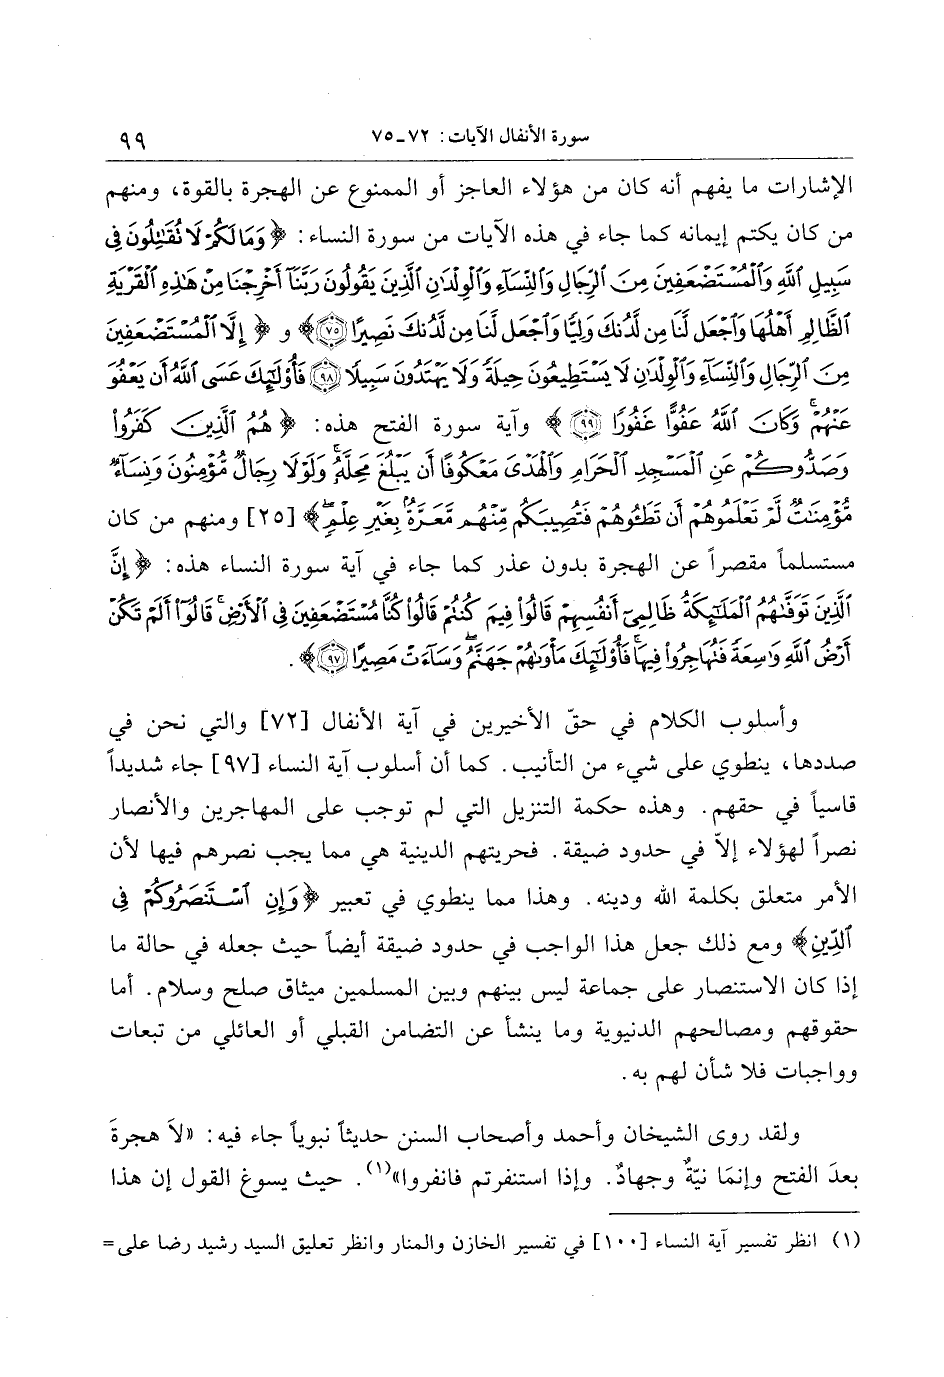 سورة الأنفال الآيات: ٧٢-٧٥ ٩٩
الإشارات ما يفهم أنه كان من هؤلاء العاجز أو الممنوع عن الهجرة بالقوة، ومنهم
من كان يكتم إيمانه كما جاء في هذه الآيات من سورة النساء: ﴿وَمَا لَكُمْ لَا تُقَٰتِلُونَ فِى
سَبِيلِ ٱللَّهِ وَٱلْمُسْتَضْعَفِينَ مِنَ ٱلرِّجَالِ وَٱلنِّسَآءِ وَٱلْوِلْدَٰنِ ٱلَّذِينَ يَقُولُونَ رَبَّنَآ أَخْرِجْنَا مِنْ هَٰذِهِ ٱلْقَرْيَةِ
ٱلظَّالِمِ أَهْلُهَا وَٱجْعَل لَّنَا مِن لَّدُنكَ وَلِيًّا وَٱجْعَل لَّنَا مِن لَّدُنكَ نَصِيرًا (٧٥)﴾ و ﴿إِلَّا ٱلْمُسْتَضْعَفِينَ
مِنَ ٱلرِّجَالِ وَٱلنِّسَآءِ وَٱلْوِلْدَٰنِ لَا يَسْتَطِيعُونَ حِيلَةً وَلَا يَهْتَدُونَ سَبِيلًا (٩٨) فَأُوْلَٰٓئِكَ عَسَى ٱللَّهُ أَن يَعْفُوَ
عَنْهُمْ ۚ وَكَانَ ٱللَّهُ عَفُوًّا غَفُورًا (٩٩)﴾ وآية سورة الفتح هذه: ﴿هُمُ ٱلَّذِينَ كَفَرُواْ
وَصَدُّوكُمْ عَنِ ٱلْمَسْجِدِ ٱلْحَرَامِ وَٱلْهَدْىَ مَعْكُوفًا أَن يَبْلُغَ مَحِلَّهُۥ ۚ وَلَوْلَا رِجَالٌ مُّؤْمِنُونَ وَنِسَآءٌ
مُّؤْمِنَٰتٌ لَّمْ تَعْلَمُوهُمْ أَن تَطَـُٔوهُمْ فَتُصِيبَكُم مِّنْهُم مَّعَرَّةٌۢ بِغَيْرِ عِلْمٍ ۖ﴾ [٢٥] ومنهم من كان
مستسلماً مقصراً عن الهجرة بدون عذر كما جاء في آية سورة النساء هذه: ﴿إِنَّ
ٱلَّذِينَ تَوَفَّىٰهُمُ ٱلْمَلَٰٓئِكَةُ ظَالِمِىٓ أَنفُسِهِمْ قَالُواْ فِيمَ كُنتُمْ قَالُواْ كُنَّا مُسْتَضْعَفِينَ فِى ٱلْأَرْضِ ۚ قَالُوٓاْ أَلَمْ تَكُنْ
أَرْضُ ٱللَّهِ وَٰسِعَةً فَتُهَاجِرُواْ فِيهَا ۚ فَأُوْلَٰٓئِكَ مَأْوَىٰهُمْ جَهَنَّمُ ۖ وَسَآءَتْ مَصِيرًا (٩٧)﴾.
وأسلوب الكلام في حقّ الأخيرين في آية الأنفال [٧٢] والتي نحن في
صددها، ينطوي على شيء من التأنيب. كما أن أسلوب آية النساء [٩٧] جاء شديداً
قاسياً في حقهم. وهذه حكمة التنزيل التي لم توجب على المهاجرين والأنصار
نصراً لهؤلاء إلاّ في حدود ضيقة. فحريتهم الدينية هي مما يجب نصرهم فيها لأن
الأمر متعلق بكلمة الله ودينه. وهذا مما ينطوي في تعبير ﴿وَإِنِ ٱسْتَنصَرُوكُمْ فِى
ٱلدِّينِ﴾ ومع ذلك جعل هذا الواجب في حدود ضيقة أيضاً حيث جعله في حالة ما
إذا كان الاستنصار على جماعة ليس بينهم وبين المسلمين ميثاق صلح وسلام. أما
حقوقهم ومصالحهم الدنيوية وما ينشأ عن التضامن القبلي أو العائلي من تبعات
وواجبات فلا شأن لهم به.
ولقد روى الشيخان وأحمد وأصحاب السنن حديثاً نبوياً جاء فيه: «لاَ هجرةَ
بعدَ الفتح وإنمَا نيّةٌ وجهادٌ. وإذا استنفرتم فانفروا»(١). حيث يسوغ القول إن هذا
(١) انظر تفسير آية النساء [١٠٠] في تفسير الخازن والمنار وانظر تعليق السيد رشيد رضا على=